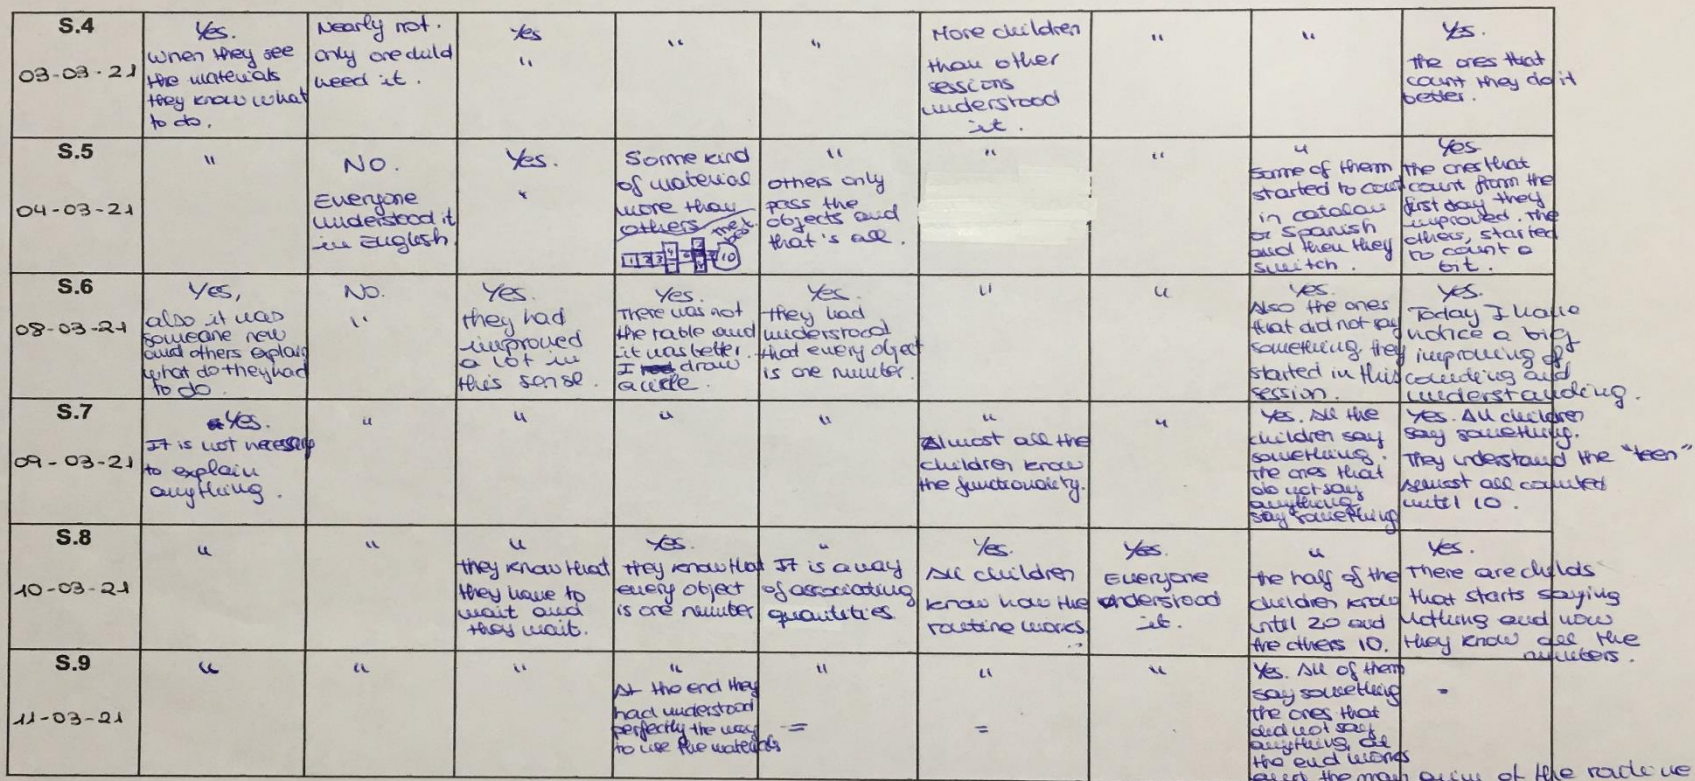 S.4
03-03-21
Yes.
When they see
the materials
they know what
to do.
Nearly not.
only one child
need it.
Yes
"
"
"
More children
than other
sessions
understood
it.
"
"
Yes.
The ones that
count they do it
better.
S.5
04-03-21
"
NO.
Everyone
understood it
in English
Yes.
"
Some kind
of material
more than
others
the best
1 2 3
10
"
others only
pass the
objects and
that's all.
"
"
"
some of them
started to count
in catalan
or Spanish
and then they
switch.
Yes
The ones that
count from the
first day they
improved. The
others, started
to count a
bit.
S.6
08-03-21
Yes,
also it was
someone new
and others explain
what do they had
to do.
NO.
"
Yes.
they had
improved
a lot in
this sense.
Yes.
There was not
the table and
it was better.
I draw
a circle.
Yes.
they had
understood
that every object
is one number.
"
"
Yes.
Also the ones
that did not say
something, they
started in this
session.
Yes.
Today I have
notice a big
improving of
counting and
understanding.
S.7
09-03-21
Yes.
It is not necessary
to explain
anything.
"
"
"
"
"
Almost all the
children know
the functionality.
"
Yes. All the
children say
something.
The ones that
do not say
anything,
say something
Yes. All children
say something.
They understand the "teen"
Almost all counted
until 10.
S.8
10-03-21
"
"
"
they know that
they have to
wait and
they wait.
Yes.
they know that
every object
is one number
"
It is a way
of associating
quantities
Yes.
All children
know how the
routine works.
Yes.
Everyone
understood
it.
"
the half of the
children know
until 20 and
the others 10.
Yes.
There are childs
that starts saying
nothing and now
they know all the
numbers.
S.9
11-03-21
"
"
"
"
At the end they
had understood
perfectly the way
to use the materials
"
=
"
=
"
Yes. All of them
say something
the ones that
did not say
anything, at
the end works
and the main of the routine
"